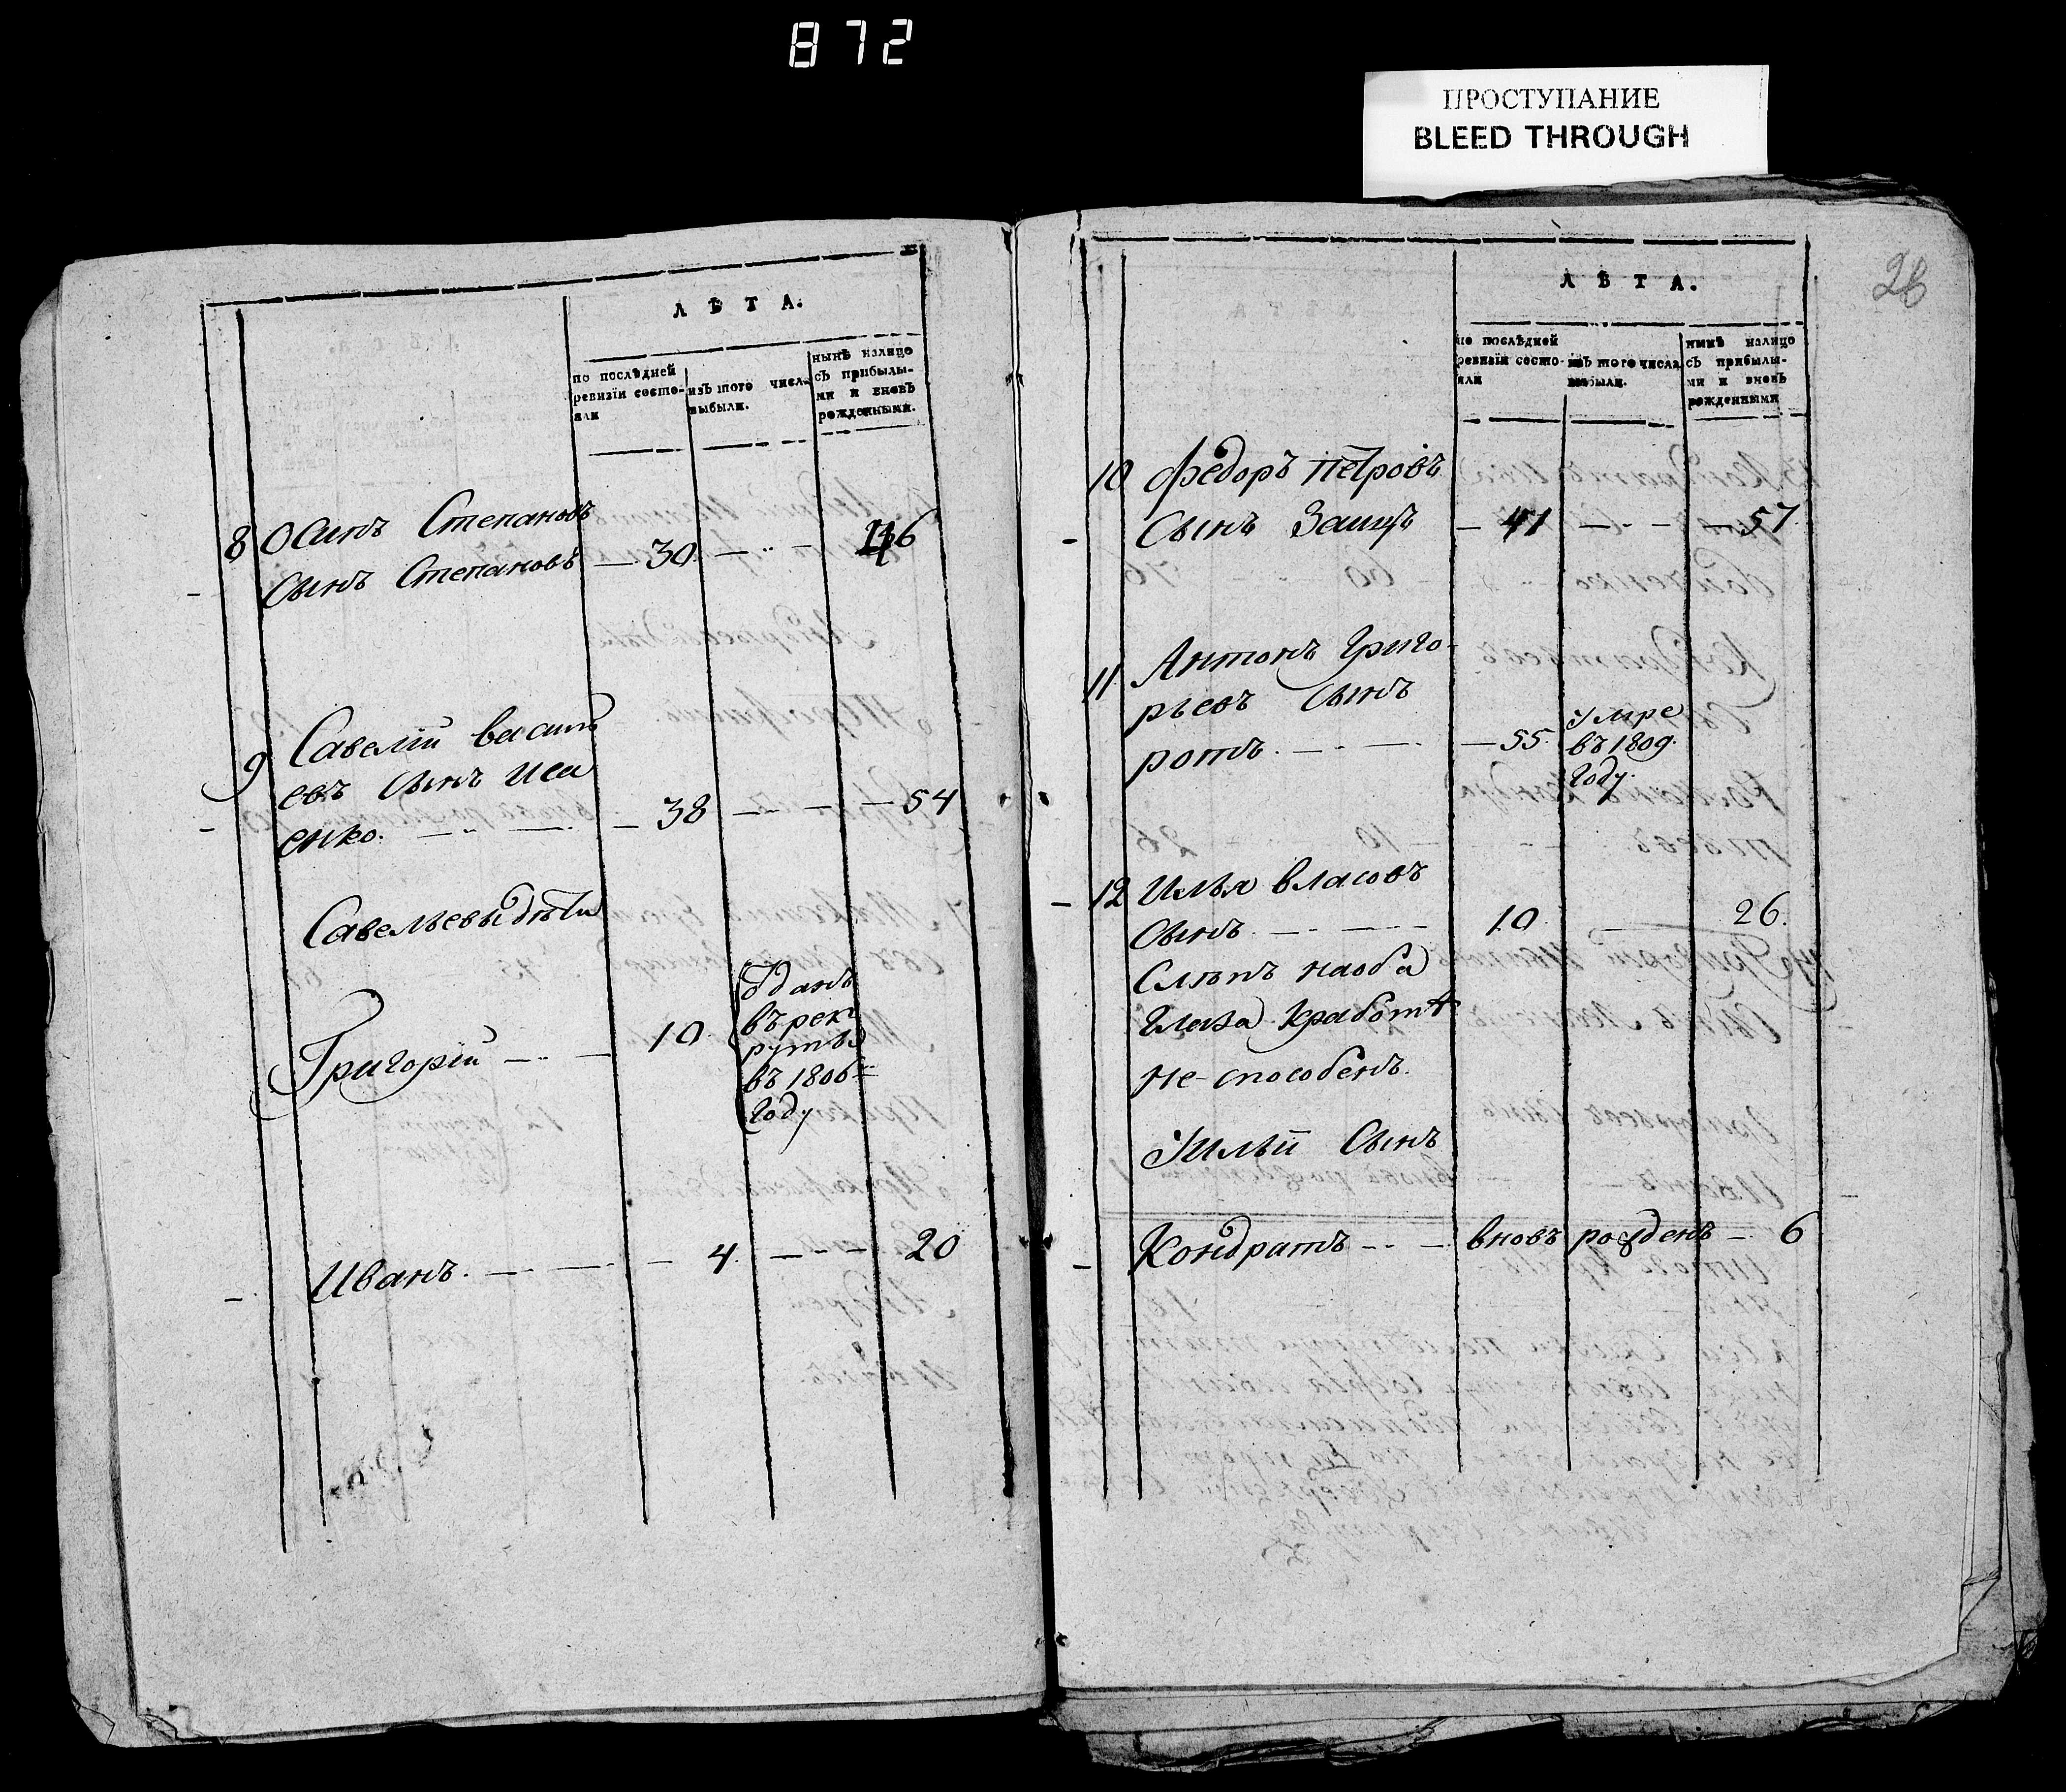 872
ПРОСТУПАНИЕ
BLEED THROUGH
ЛѢТА.
по послѣдней
ревизіи состо-
яли
изъ того числа
выбыли.
нынѣ налицо
съ прибылы-
ми и вновь
рожденными.
8 Осипъ Степановъ
сынъ Степановъ — 30 — 46
9 Савелій Василь
евъ сынъ Иса
енко. — 38 — 54
Савельевы дѣти
Григорій — 10
Отданъ
въ рек
руты
въ 1806
году
Иванъ. — 4 — 20
26
ЛѢТА.
по послѣдней
ревизіи состо-
яли
изъ того числа
выбыли.
нынѣ налицо
съ прибылы-
ми и вновь
рожденными
10 Федоръ Петровъ
сынъ Заицъ — 41 — 57
11 Антонъ Григо-
рьевъ сынъ
ротъ. — 55
умре
въ 1809.
году.
12 Илья Власовъ
сынъ — 10 — 26.
Слѣпъ на оба
глаза к работѣ
не способенъ.
У Ильи сынъ
Кондратъ — вновь рожденъ — 6